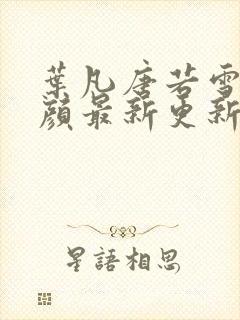 葉凡唐若雪
顏最新更新
星語相思